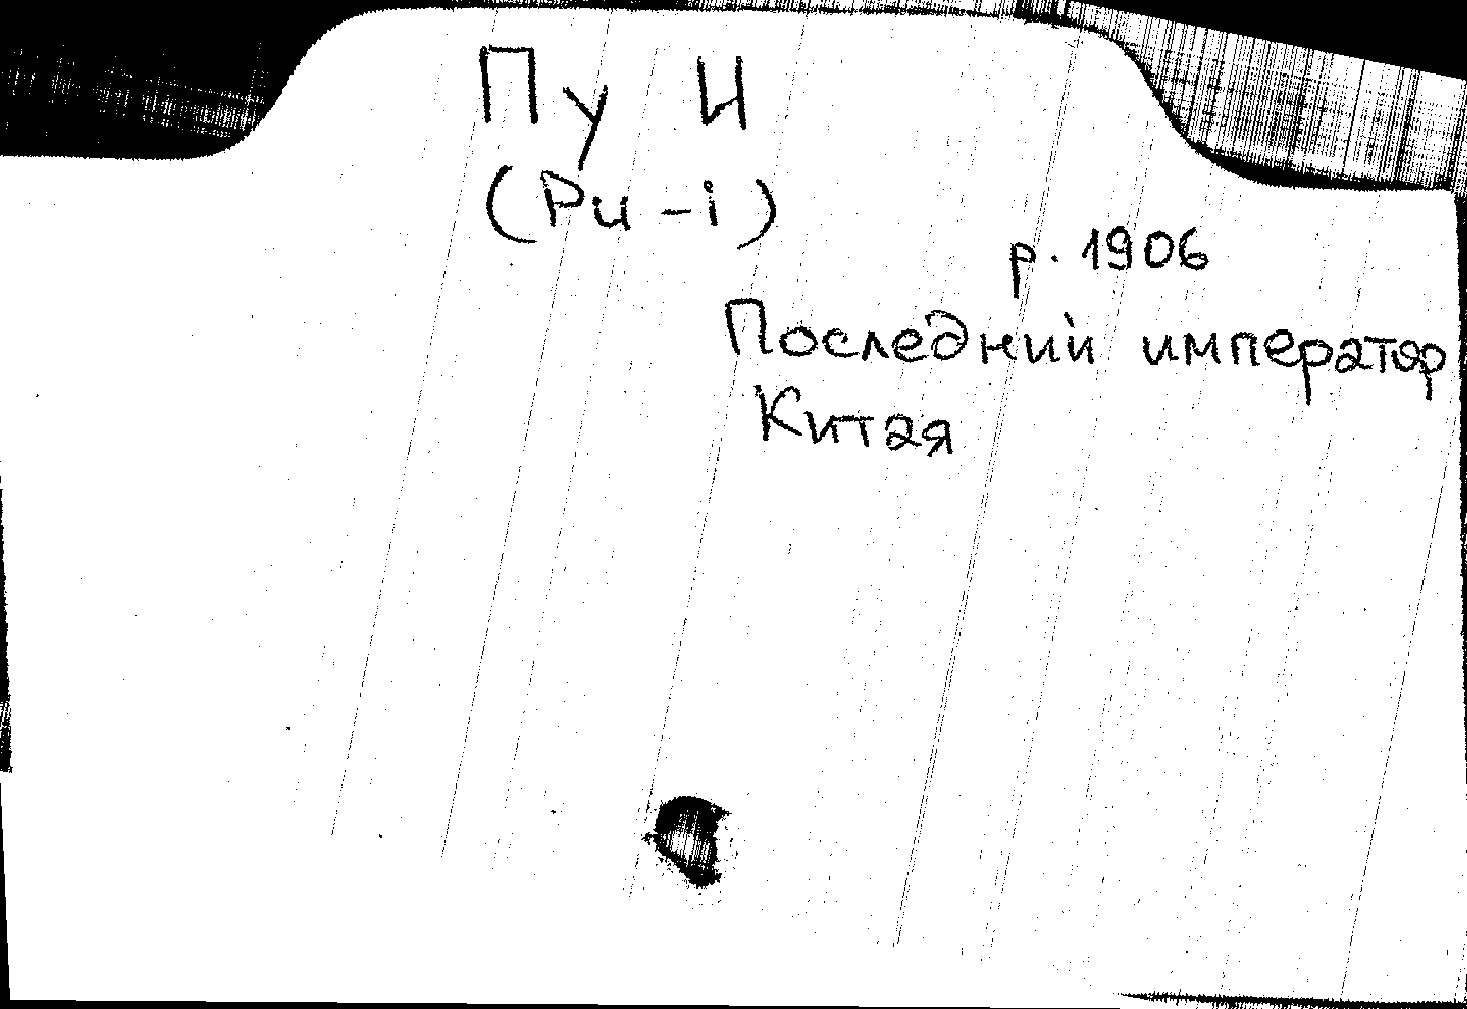 Пу И
(Pu-i)
р. 1906
Последний император
Китая